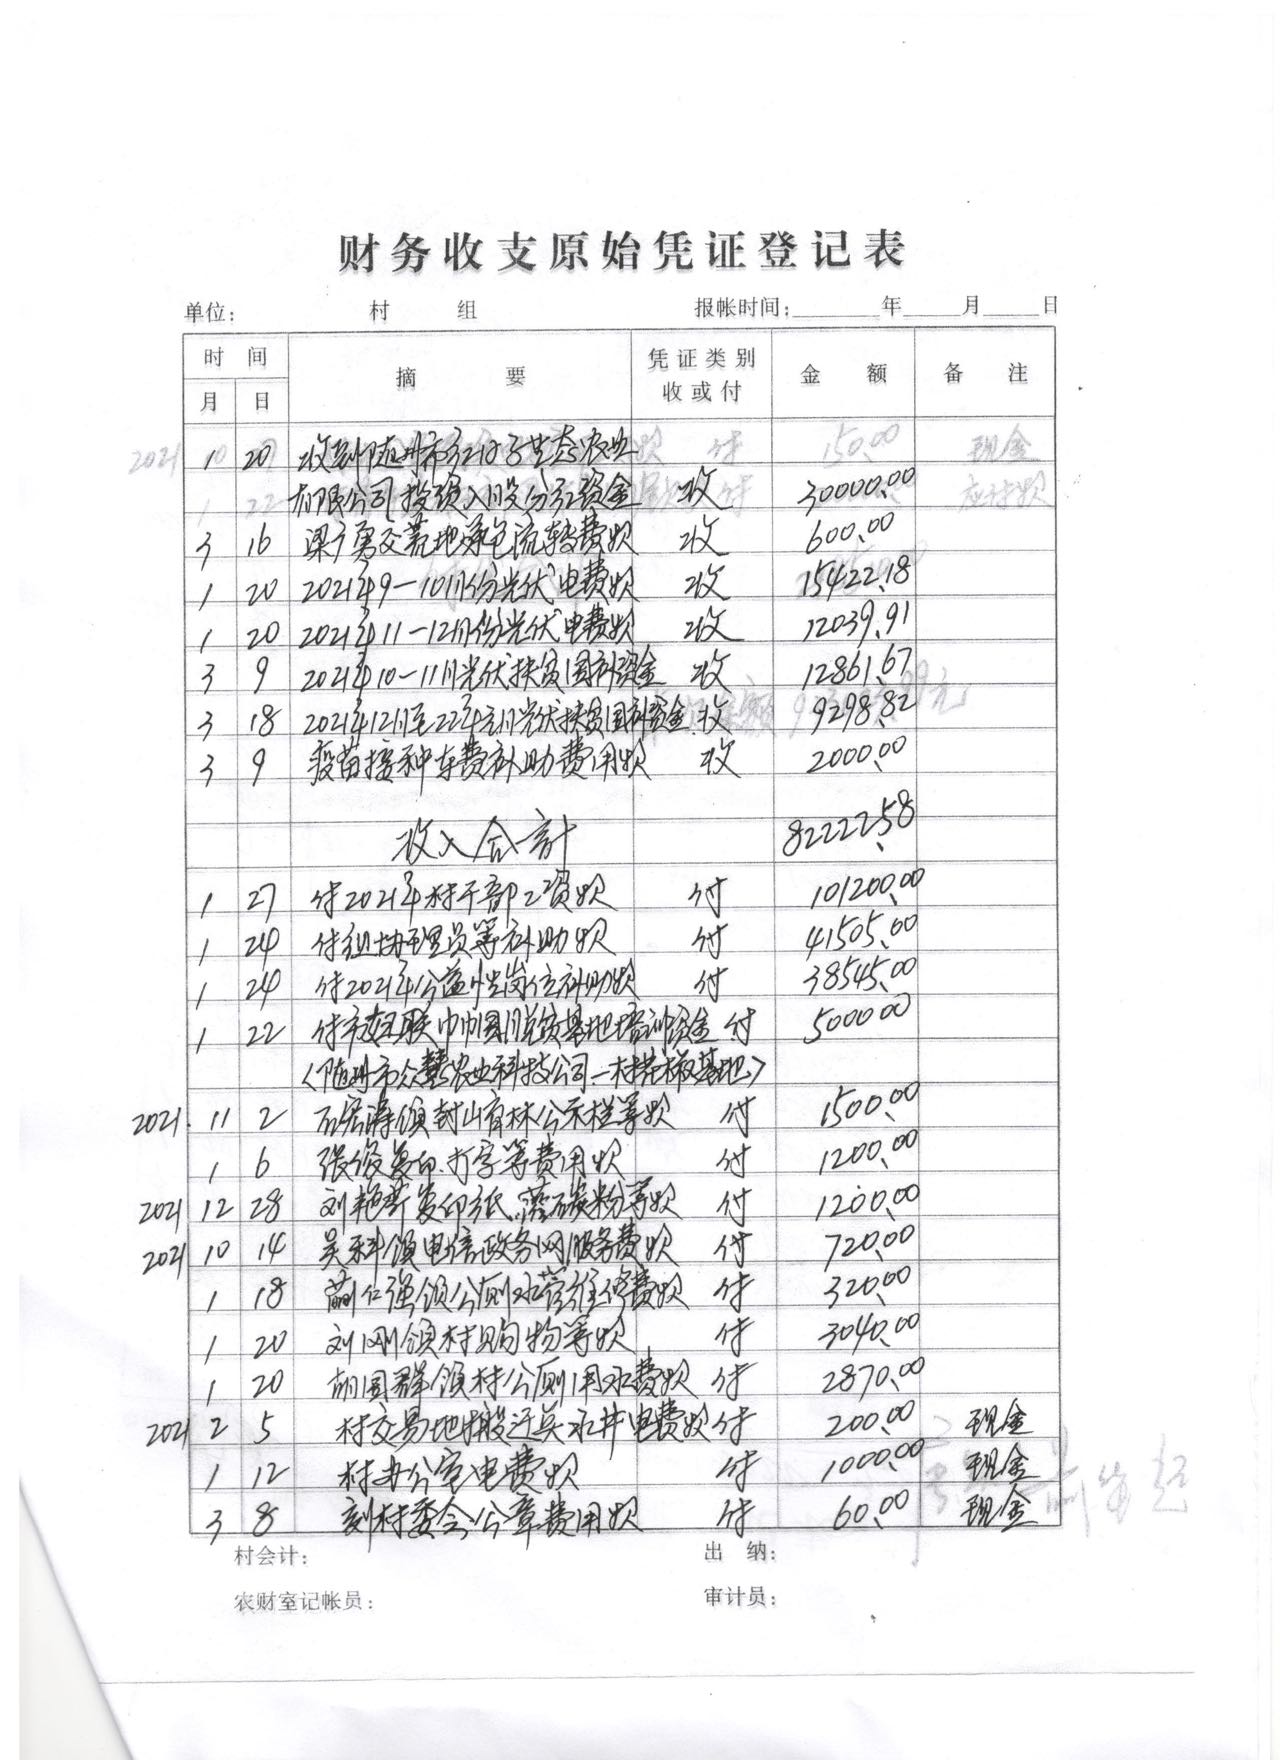 财务收支原始凭证登记表
单位: 村 组 报帐时间: 年 月 日
时 间 摘 要 凭证类别 金 额 备 注
月 日 收或付
1 20 收到随州市 生态农业
有限公司投资入股分红资金 收 30000.00
3 16 梁 勇交荒地承包流转费款 收 600.00
1 20 2021年9-10月份光伏电费款 收 15422.18
1 20 2021年11-12月份光伏电费款 收 12039.91
3 9 2021年10-11月光伏扶贫国补资金 收 12861.67
3 18 2021年12月至22年元月光伏扶贫国补资金 收 9298.82
3 9 疫苗接种车费补助费用款 收 2000.00
收入合计 82222.58
1 27 付2021年村干部工资款 付 101200.00
1 24 付组协理员等补助款 付 41505.00
1 24 付2021年公益性岗位补助款 付 38545.00
1 22 付市妇联巾帼脱贫基地培训资金 付 5000.00
(随州市众 农业科技公司-村花椒基地)
2021. 11 2 石 涛领封山育林公示栏等款 付 1500.00
1 6 张俊复印.打字等费用款 付 1200.00
2021 12 28 刘艳 复印纸、 碳粉等款 付 1200.00
2021 10 14 吴科领电信政务网服务费款 付 720.00
1 18 仁强领公厕水管维修费款 付 320.00
1 20 刘刚领村购物等款 付 3040.00
1 20 胡国群领村公厕用水费款 付 2870.00
2021 2 5 村交易地搬迁点水井电费款 付 200.00 现金
1 12 村办公室电费款 付 1000.00 现金
3 8 刻村委会公章费用款 付 60.00 现金
村会计: 出 纳:
农财室记帐员: 审计员: